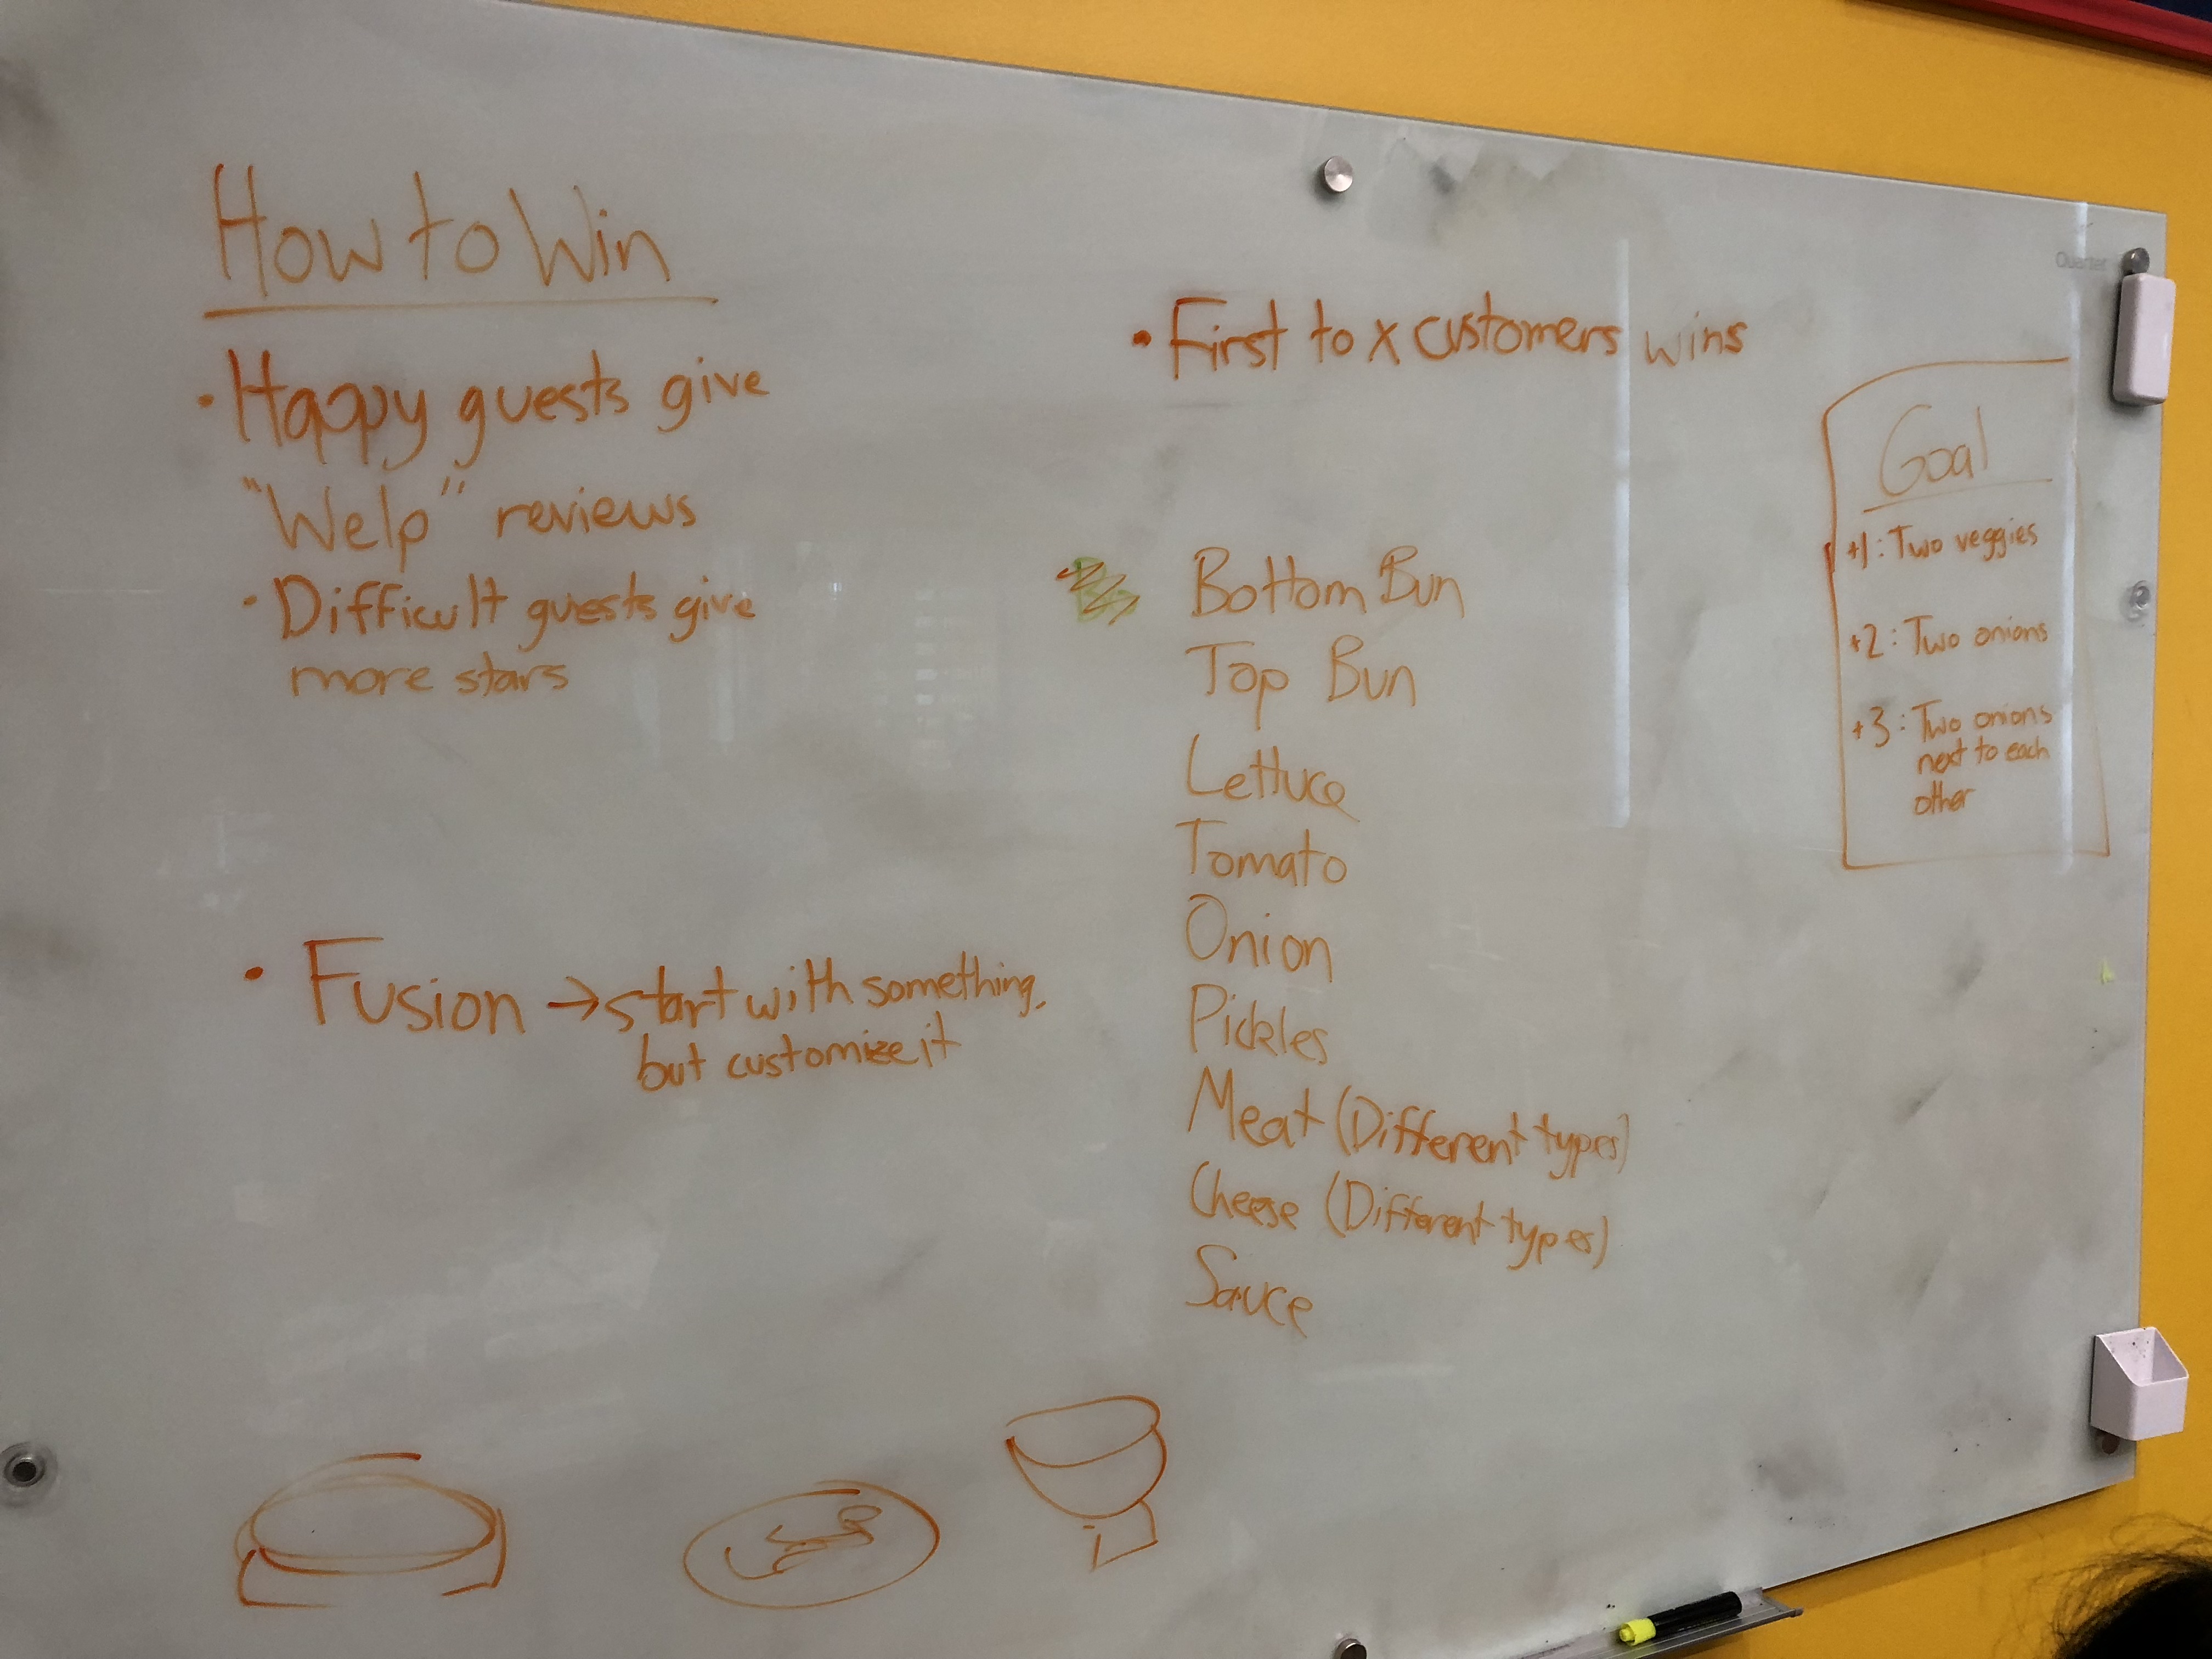 How to Win
• Happy guests give
"Welp" reviews
• Difficult guests give
more stars
• Fusion → start with something,
but customize it
• First to x customers wins
Bottom Bun
Top Bun
Lettuce
Tomato
Onion
Pickles
Meat (Different types)
Cheese (Different types)
Sauce
Goal
+1: Two veggies
+2: Two onions
+3: Two onions
next to each
other
Quartet